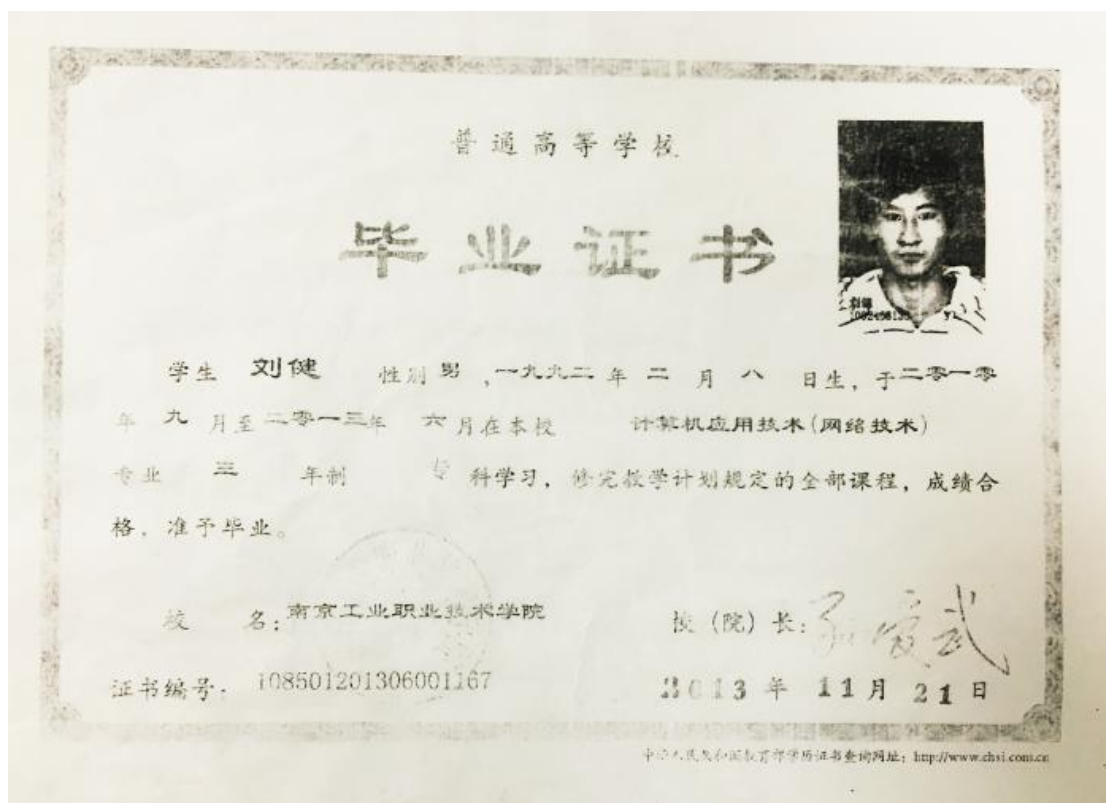 普通高等学校
毕业证书
学生 刘健 性别 男 ,一九九二 年 二 月 八 日生，于二零一零
年 九 月至二零一三年 六 月在本校 计算机应用技术(网络技术)
专业 三 年制 专 科学习，修完教学计划规定的全部课程，成绩合
格，准予毕业。
校 名: 南京工业职业技术学院
校（院）长:
证书编号: 108501201306001167
2013 年 11 月 21 日
中华人民共和国教育部学历证书查询网址: http://www.chsi.com.cn